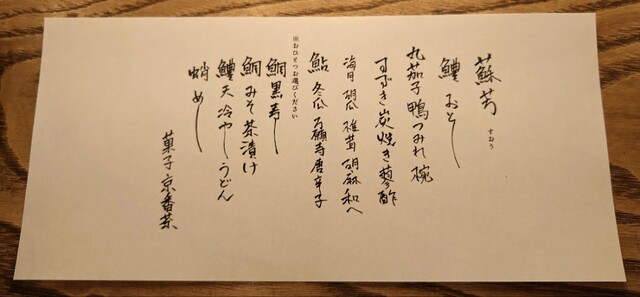 蘇芳 すおう
鱧 おとし
丸茄子 鴨つみれ 椀
すずき 炭焼き 蓼酢
海月 胡瓜 椎茸 胡麻和へ
鮎 冬瓜 万願寺唐辛子
※おひとつお選びください
鯛黒寿し
鯛みそ茶漬け
鱧天冷やしうどん
蛸めし
菓子 京番茶